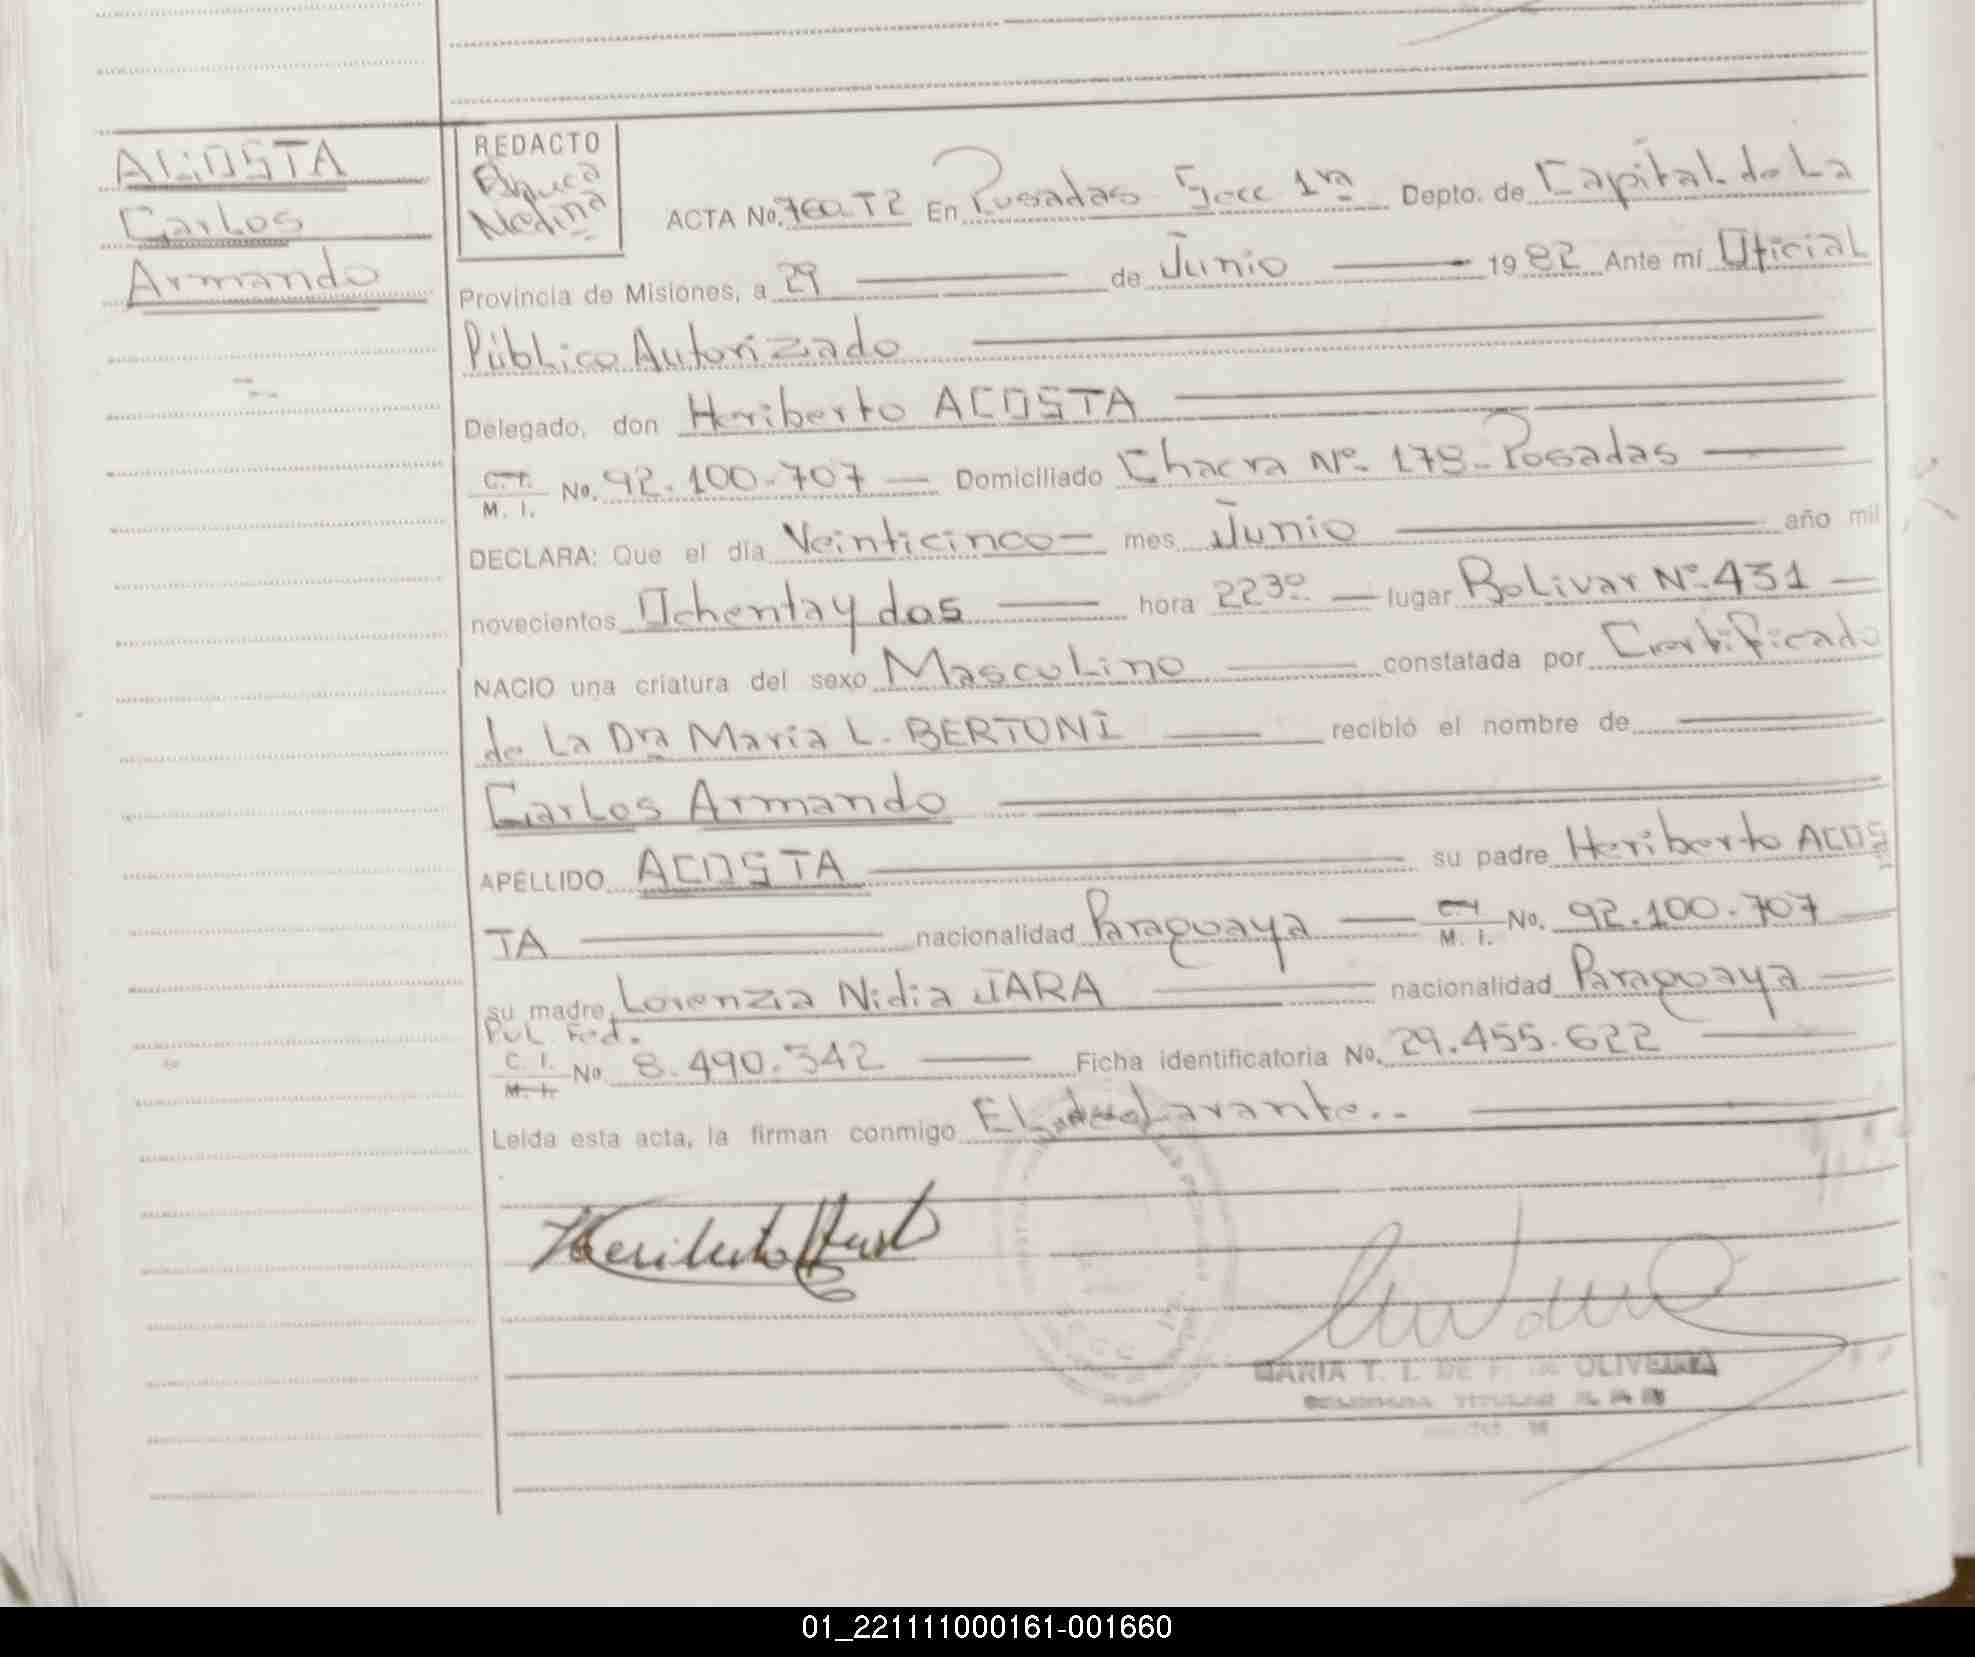 ACOSTA
Carlos
Armando
REDACTO
Blanca
Medina
ACTA No. 760 T2 En Posadas Secc 1ra Depto. de Capital de La
Provincia de Misiones, a 29 de Junio 1982 Ante mí Oficial
Público Autorizado
Delegado, don Heriberto ACOSTA
C. I. M. I. No. 92.100.707 Domiciliado Chacra Nº 178 - Posadas
DECLARA: Que el día Veinticinco mes Junio año mil
novecientos Ochenta y dos hora 22 30 lugar Bolivar Nº 431
NACIO una criatura del sexo Masculino constatada por Certificado
de La Dra Maria L. BERTONI recibió el nombre de
Carlos Armando
APELLIDO ACOSTA su padre Heriberto ACOS
TA nacionalidad Paraguaya C. I. M. I. No. 92.100.707
su madre Lorenza Nidia JARA nacionalidad Paraguaya
Pol. Fed.
C. I. M. I. No 8.490.342 Ficha identificatoria No. 29.455.622
Leida esta acta, la firman conmigo El declarante..
Heriberto
MARIA T. I. DE OLIVEIRA
TITULAR
01_221111000161-001660